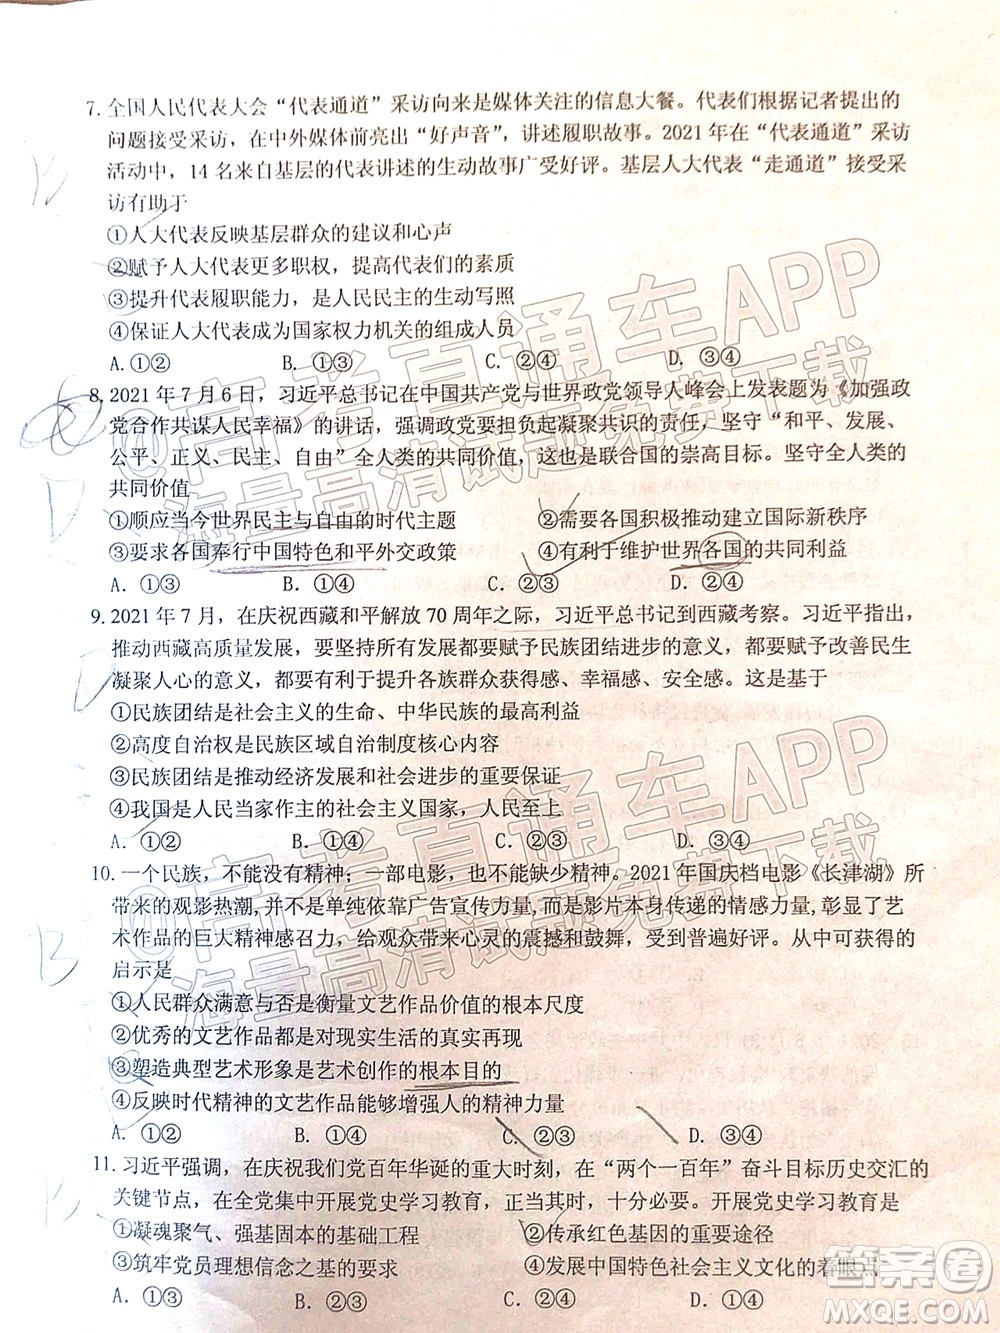 7. 全国人民代表大会“代表通道”采访向来是媒体关注的信息大餐。代表们根据记者提出的
问题接受采访，在中外媒体前亮出“好声音”，讲述履职故事。2021年在“代表通道”采访
活动中，14名来自基层的代表讲述的生动故事广受好评。基层人大代表“走通道”接受采
访有助于
①人大代表反映基层群众的建议和心声
②赋予人大代表更多职权，提高代表们的素质
③提升代表履职能力，是人民民主的生动写照
④保证人大代表成为国家权力机关的组成人员
A. ①② B. ①③ C. ②④ D. ③④
B
8. 2021年7月6日，习近平总书记在中国共产党与世界政党领导人峰会上发表题为《加强政
党合作共谋人民幸福》的讲话，强调政党要担负起凝聚共识的责任，坚守“和平、发展、
公平、正义、民主、自由”全人类的共同价值，这也是联合国的崇高目标。坚守全人类的
共同价值
①顺应当今世界民主与自由的时代主题 ②需要各国积极推动建立国际新秩序
③要求各国奉行中国特色和平外交政策 ④有利于维护世界各国的共同利益
A. ①③ B. ①④ C. ②③ D. ②④
D
9. 2021年7月，在庆祝西藏和平解放70周年之际，习近平总书记到西藏考察。习近平指出，
推动西藏高质量发展，要坚持所有发展都要赋予民族团结进步的意义，都要赋予改善民生
凝聚人心的意义，都要有利于提升各族群众获得感、幸福感、安全感。这是基于
①民族团结是社会主义的生命、中华民族的最高利益
②高度自治权是民族区域自治制度核心内容
③民族团结是推动经济发展和社会进步的重要保证
④我国是人民当家作主的社会主义国家，人民至上
A. ①② B. ①④ C. ②③ D. ③④
D
10. 一个民族，不能没有精神；一部电影，也不能缺少精神。2021年国庆档电影《长津湖》所
带来的观影热潮,并不是单纯依靠广告宣传力量，而是影片本身传递的情感力量,彰显了艺
术作品的巨大精神感召力，给观众带来心灵的震撼和鼓舞，受到普遍好评。从中可获得的
启示是
①人民群众满意与否是衡量文艺作品价值的根本尺度
②优秀的文艺作品都是对现实生活的真实再现
③塑造典型艺术形象是艺术创作的根本目的
④反映时代精神的文艺作品能够增强人的精神力量
A. ①② B. ①④ C. ②③ D. ③④
B
11. 习近平强调，在庆祝我们党百年华诞的重大时刻，在“两个一百年”奋斗目标历史交汇的
关键节点，在全党集中开展党史学习教育，正当其时，十分必要。开展党史学习教育是
①凝魂聚气、强基固本的基础工程 ②传承红色基因的重要途径
③筑牢党员理想信念之基的要求 ④发展中国特色社会主义文化的着眼点
A. ①③ B. ②③ C. ②④ D. ①④
B
@高考直通车APP
海量高清试题第一下载
@高考直通车APP
海量高清试题第一下载
答案卷
MXQE.COM